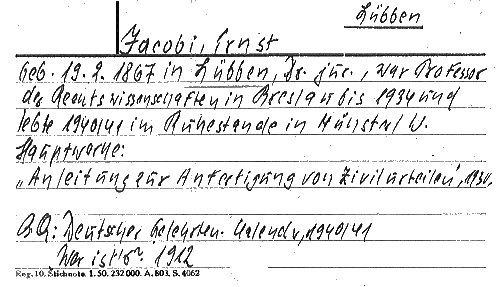 Lübben
Jacobi, Ernst
geb. 19.2. 1867 in Lübben, Dr. jur., war Professor
der Rechtswissenschaften in Breslau bis 1934 und
lebte 1940/41 im Ruhestande in Münster/W.
Hauptwerke:
"Anleitung zur Anfertigung von Zivilurteilen", 1930,
BQ: Deutscher Gelehrten-Kalender, 1940/41
Wer ist's? 1912
Reg. 10. Stichnote. 1. 50. 232 000. A. 803. S. 4062